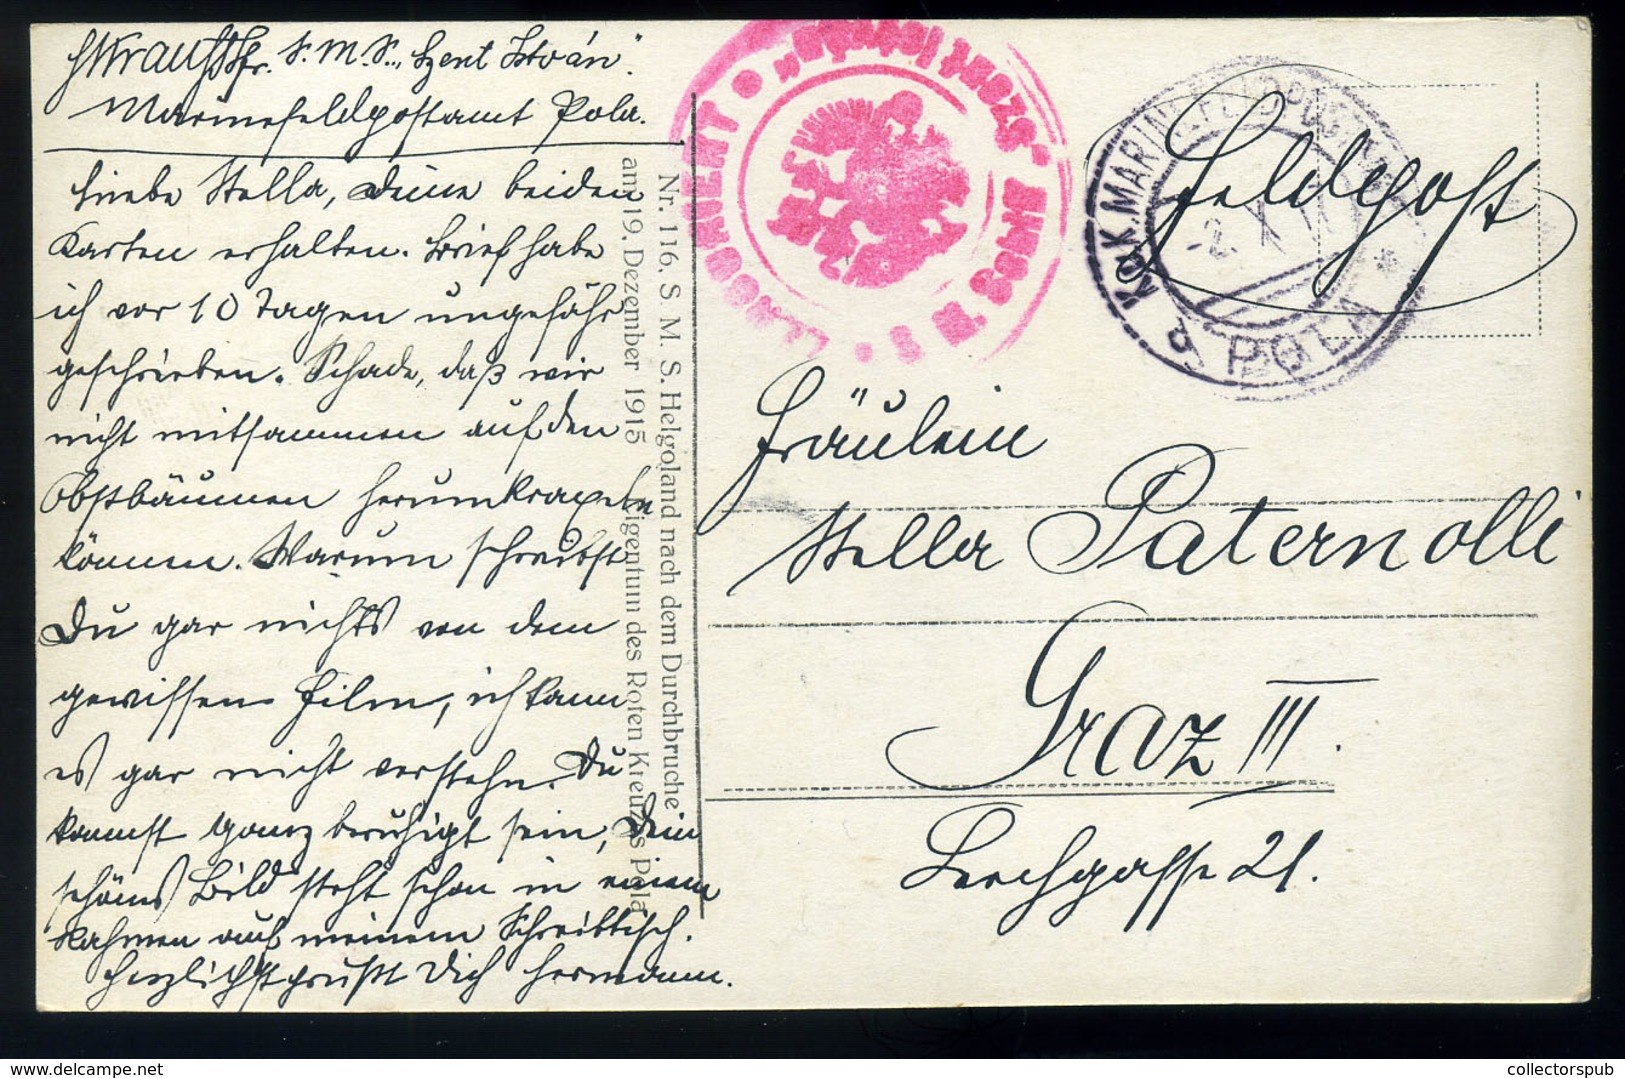 HKrauss Fr. S.M.S. „Szent István"
Marinefeldpostamt Pola.
Liebe Stella, Deine beiden
Karten erhalten. Brief habe
ich vor 10 Tagen ungefähr
geschrieben. Schade, daß wir
nicht mitsammen auf den
Obstbäumen herumkraxeln
können. Warum schreibst
Du gar nichts von dem
gewissen Film, ich kann
es gar nicht verstehn. Du
kannst ganz beruhigt sein, Dein
schönes Bild steht schon in einem
Rahmen auf meinem Schreibtisch.
Herzlichst grüßt Dich Hermann.
Nr. 116. S. M. S. Helgoland nach dem Durchbruche
am 19. Dezember 1915 Eigentum des Roten Kreuzes Pola
S. M. Schiff „Szent István"
K.u.K. MARINEFELDPOSTAMT
-2. X
a POLA
Feldpost
Fräulein
Stella Paternolli
Graz III.
Lerchgasse 21.
collectorspub.com
collectorspub